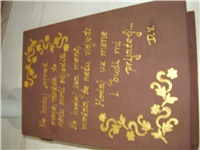 Ne hodaj ispred
mene, možda te
neću moći slijediti.
Ne hodaj iza mene,
možda te neću voditi.
Hodaj uz mene
i budi mi
prijatelj...